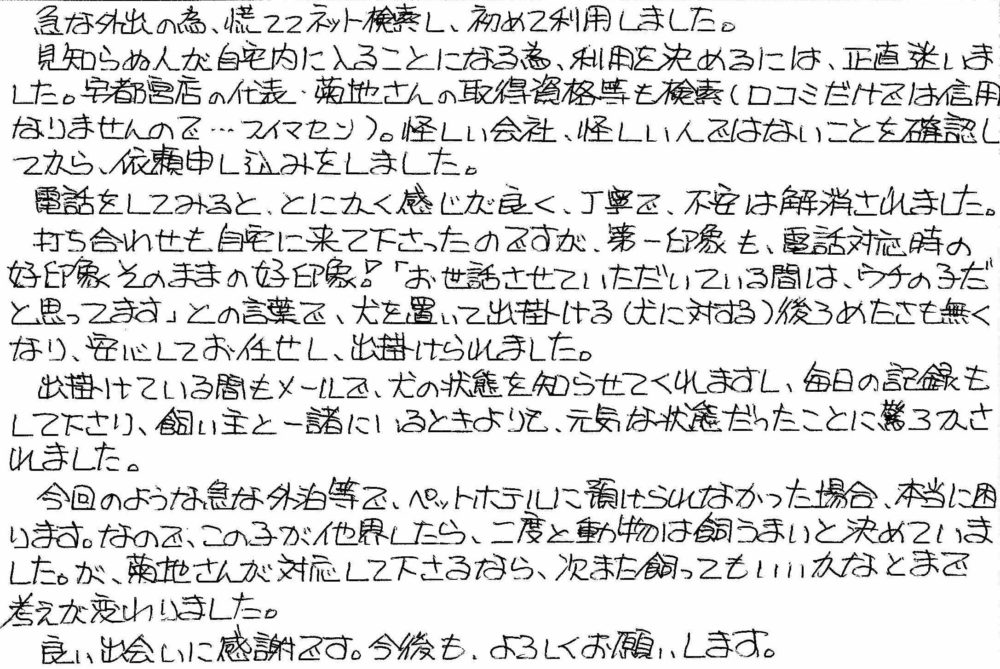 急な外出の為、慌ててネット検索し、初めて利用しました。
見知らぬ人が自宅内に入ることになる為、利用を決めるには、正直迷いま
した。宇都宮店の代表・菊地さんの取得資格等も検索(口コミだけでは信用
なりませんので…スイマセン)。怪しい会社、怪しい人ではないことを確認し
てから、依頼申し込みをしました。
電話をしてみると、とにかく感じが良く、丁寧で、不安は解消されました。
打ち合わせも自宅に来て下さったのですが、第一印象も、電話対応時の
好印象そのままの好印象!「お世話させていただいている間は、ウチの子だ
と思ってます」との言葉で、犬を置いて出掛ける(犬に対する)後ろめたさも無く
なり、安心してお任せし、出掛けられました。
出掛けている間もメールで、犬の状態を知らせてくれますし、毎日の記録も
して下さり、飼い主と一諸にいるときよりも、元気な状態だったことに驚ろかさ
れました。
今回のような急な外泊等で、ペットホテルに預けられなかった場合、本当に困
ります。なので、この子が他界したら、二度と動物は飼うまいと決めていま
した。が、菊地さんが対応して下さるなら、次また飼ってもいいかなとまで
考えが変わりました。
良い出会いに感謝です。今後も、よろしくお願いします。